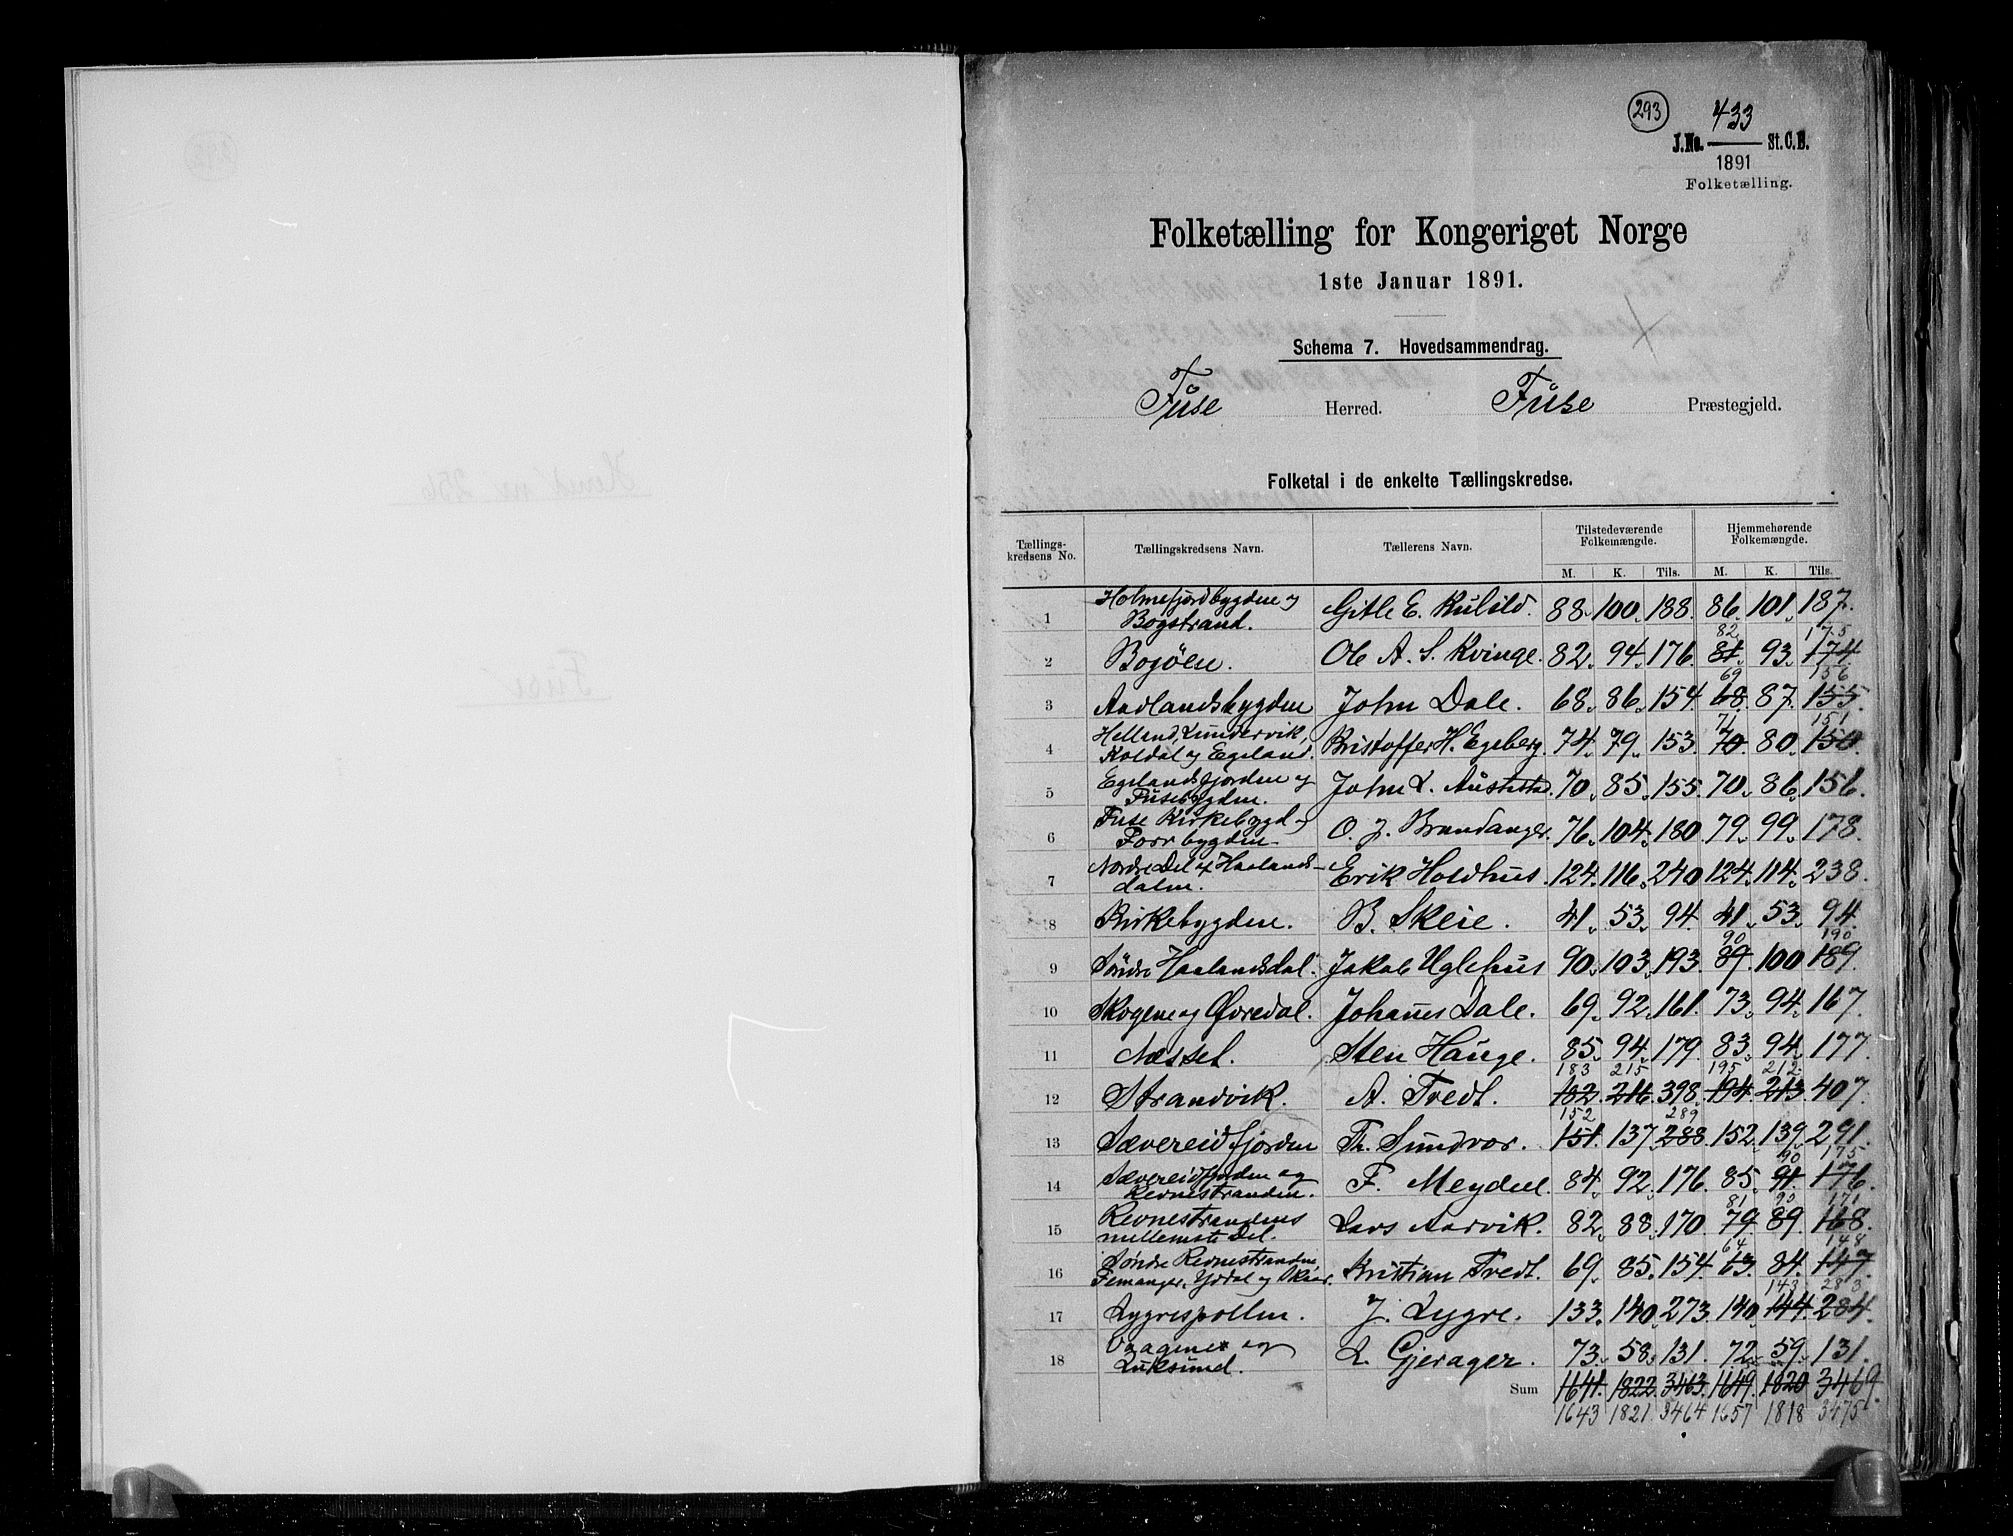 293
433
J.No. St.C.B.
1891
Folketælling.
Folketælling for Kongeriget Norge
1ste Januar 1891.
Schema 7. Hovedsammendrag.
Fuse Herred. Fuse Præstegjeld.
Folketal i de enkelte Tællingskredse.
Tællings-kredsens No. Tællingskredsens Navn. Tællerens Navn. Tilstedeværende Folkemængde. Hjemmehørende Folkemængde.
M. K. Tils. M. K. Tils.
1 Holmefjordbygden og Bogstrand. Gitle E. Kulild. 88. 100. 188. 86. 101. 187.
82 175
2 Bogøen. Ole A. S. Kvinge. 82. 94. 176. 81. 93. 174
69 156
3 Aadlandsbygden John Dale. 68. 86. 154 68. 87. 155.
71 151
4 Helland, Lundervik, Koldal og Egeland. Kristoffer H. Egeberg. 74. 79. 153. 70. 80. 150.
5 Egelandsfjorden og Fusebygden. John L. Austestad. 70. 85. 155. 70. 86. 156.
6 Fuse Kirkebygd og Forrbygden O. J. Brandanger. 76. 104. 180. 79. 99. 178.
7 Nordre Del af Haalands-dalen. Erik Holdhus. 124. 116. 240 124. 114. 238.
8 Kirkebygden. B. Skeie. 41. 53. 94. 41. 53. 94.
90 190
9 Søndre Haalandsdal. Jakob Uglehus 90. 103. 193. 89. 100 189.
10 Skogen og Øvredal. Johannes Dale. 69. 92. 161. 73. 94. 167.
11 Nesset. Sten Hauge. 85. 94. 179. 83. 94. 177.
183 215 195 212.
12 Strandvik. A. Tvedt. 182. 216. 398. 194. 213. 407.
152 289
13 Sævereidfjorden Th. Sundvor. 151. 137. 288. 152. 139. 291.
90 175
14 Sævereidfjorden og Revnestranden. F. Meydell. 84. 92. 176. 85. 91. 176.
81 90 171
15 Revnestrandens mellemste Del. Lars Aarvik. 82. 88. 170. 79. 89. 168.
64 148
16 Søndre Revnestranden, Femanger, Yddal og Skaar. Kristian Tvedt. 69. 85. 154. 63. 84. 147.
143 283
17 Lygrespollen. J. Lygre. 133. 140. 273. 140. 144. 284.
18 Vaagene og Luksund. L. Gjerager. 73. 58. 131. 72. 59. 131.
Sum 1641. 1822. 3463. 1649. 1820 3469.
1643 1821 3464 1657 1818 3475